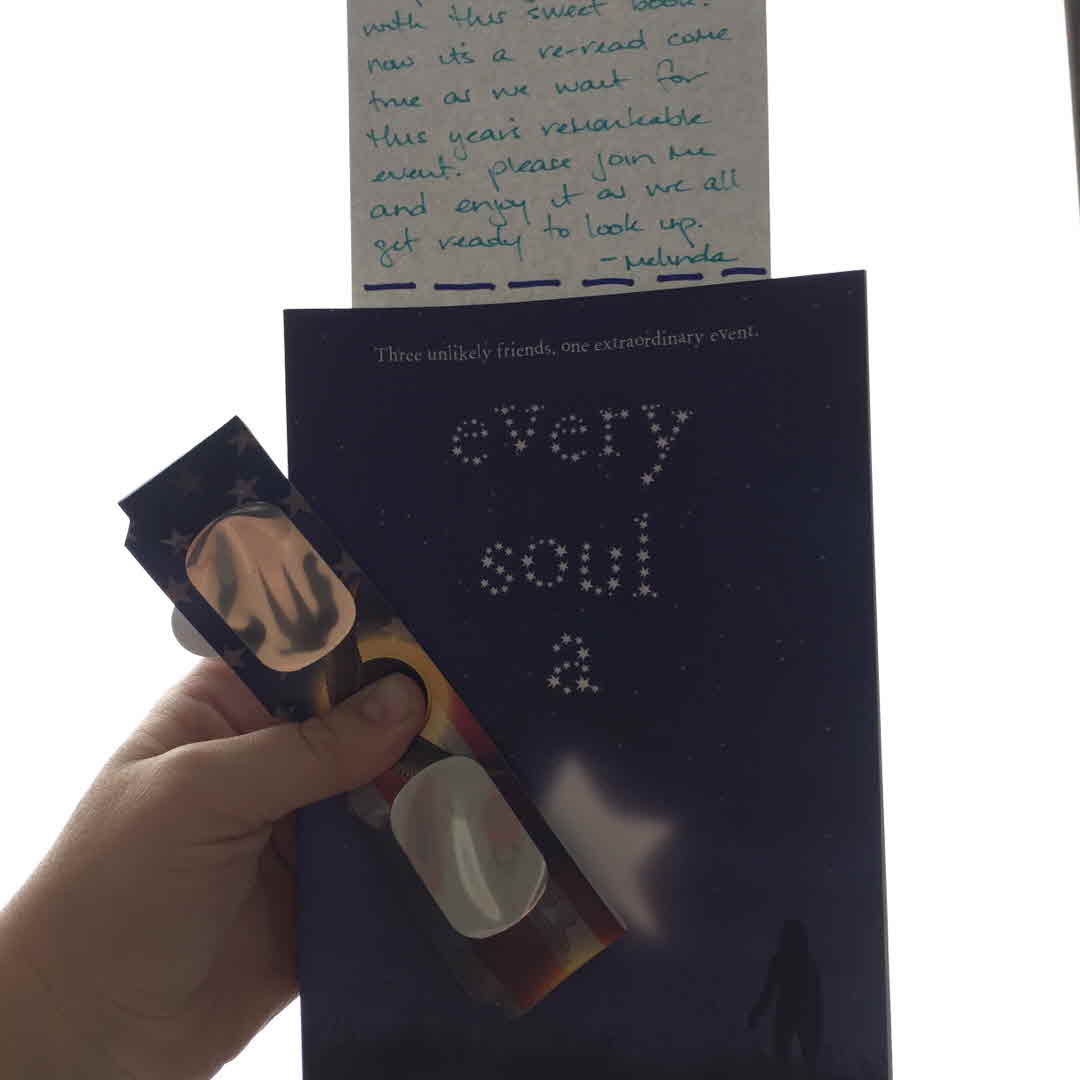 with this sweet book!
now it's a re-read come
true as we wait for
this year's remarkable
event. please join me
and enjoy it as we all
get ready to look up.
- Melinda
Three unlikely friends, one extraordinary event.
every
soul
a